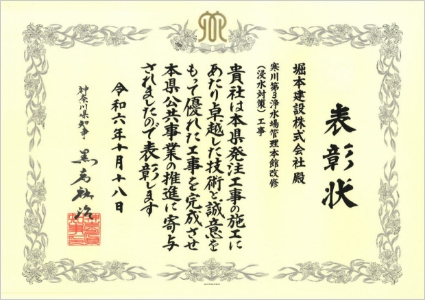 表彰状
堀本建設株式会社 殿
寒川第3浄水場管理本館改修
(浸水対策)工事
貴社は本県発注工事の施工に
あたり卓越した技術と誠意を
もって優れた工事を完成させ
本県公共事業の推進に寄与
されましたので表彰します
令和六年十月十八日
神奈川県知事 黒岩祐治